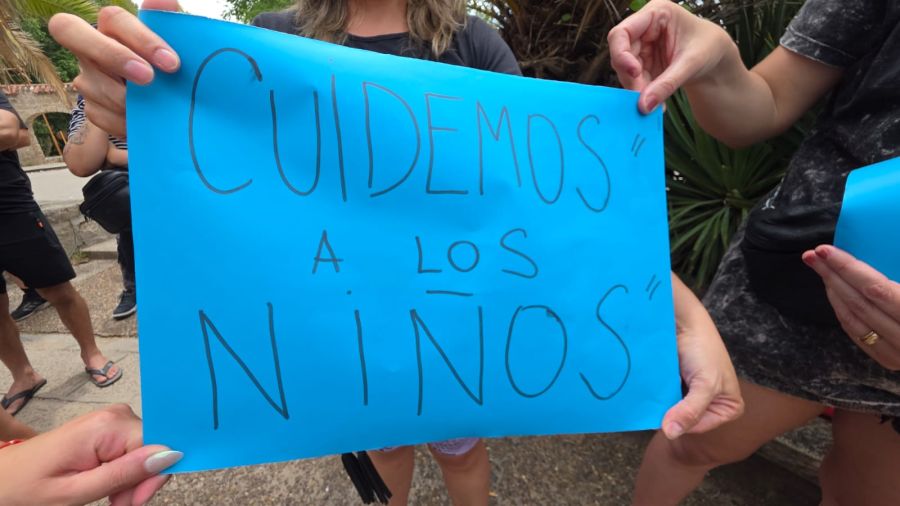 CUIDEMOS"
A LOS
NIÑOS"